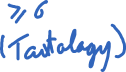 ⩾ 6
(Tautology)